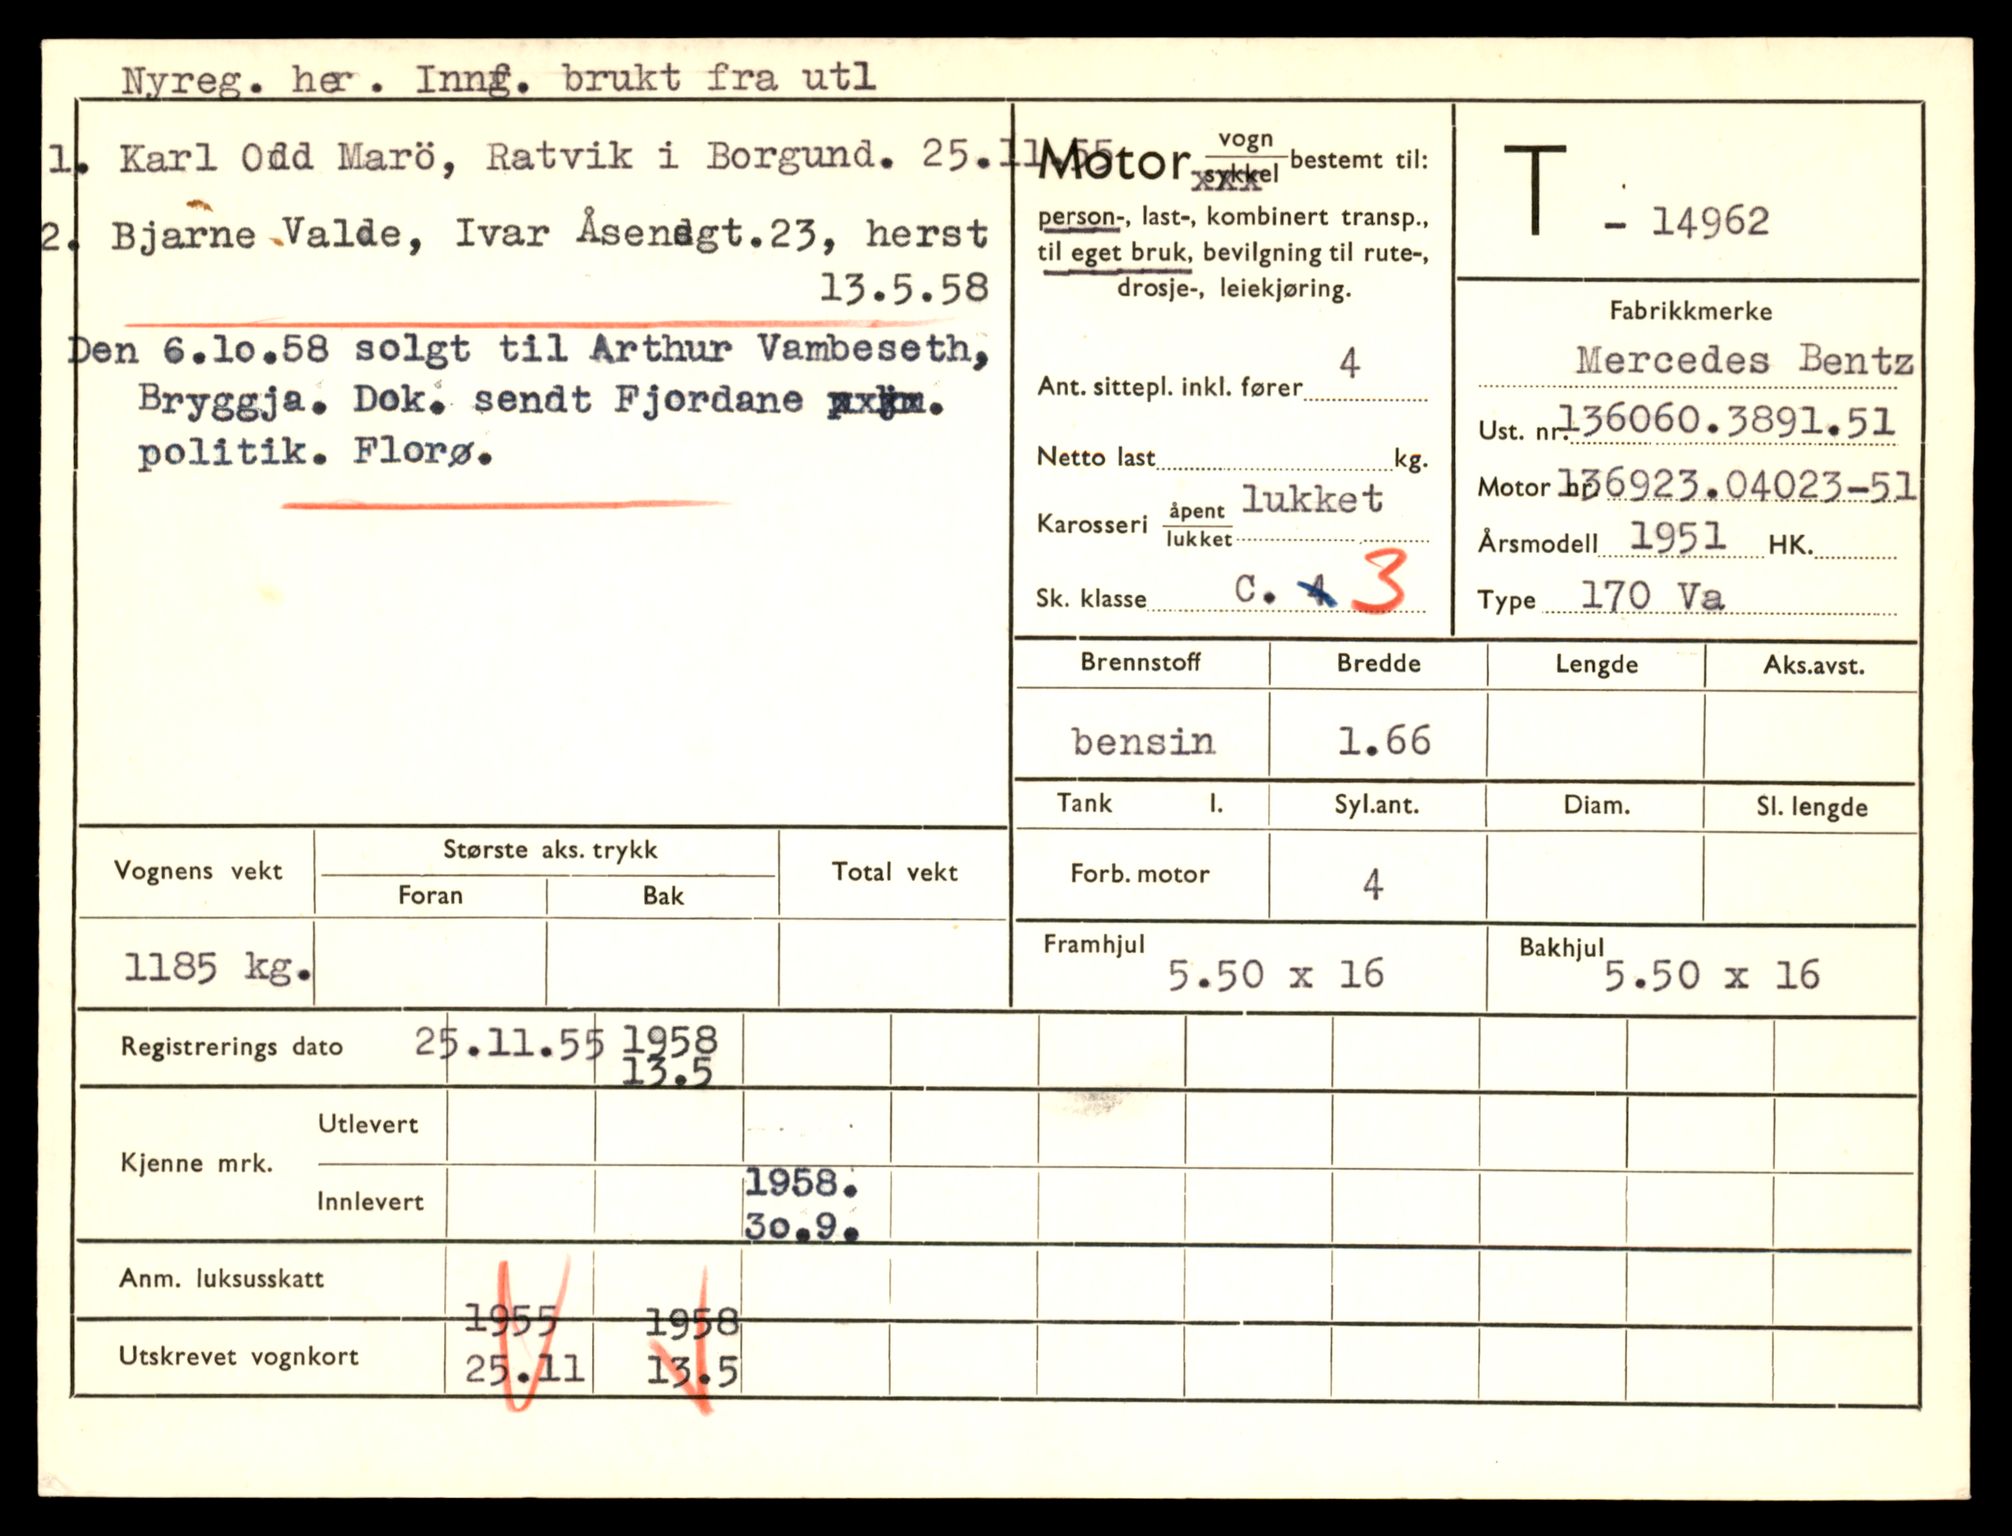 Nyreg. her. Innf. brukt fra utl
1. Karl Odd Marö, Ratvik i Borgund. 25.11.55
2. Bjarne Valde, Ivar Åsendgt.23, herst
13.5.58
Den 6.10.58 solgt til Arthur Vambeseth,
Bryggja. Dok. sendt Fjordane
politik. Florø.
Motor vogn/sykkel bestemt til:
person-, last-, kombinert transp.,
til eget bruk, bevilgning til rute-,
drosje-, leiekjøring.
Ant. sittepl. inkl. fører 4
Netto last kg.
Karosseri åpent/lukket lukket
Sk. klasse C. 4 3
T - 14962
Fabrikkmerke
Mercedes Bentz
Ust. nr. 136060.3891.51
Motor nr. 136923.04023-51
Årsmodell 1951 HK.
Type 170 Va
Brennstoff Bredde Lengde Aks.avst.
bensin 1.66
Tank l. Syl.ant. Diam. Sl. lengde
Forb. motor 4
Framhjul 5.50 x 16 Bakhjul 5.50 x 16
Vognens vekt Største aks. trykk Total vekt
Foran Bak
1185 kg.
Registrerings dato 25.11.55 1958
13.5
Kjenne mrk. Utlevert
Innlevert 1958.
30.9.
Anm. luksusskatt
1955 1958
Utskrevet vognkort 25.11 13.5